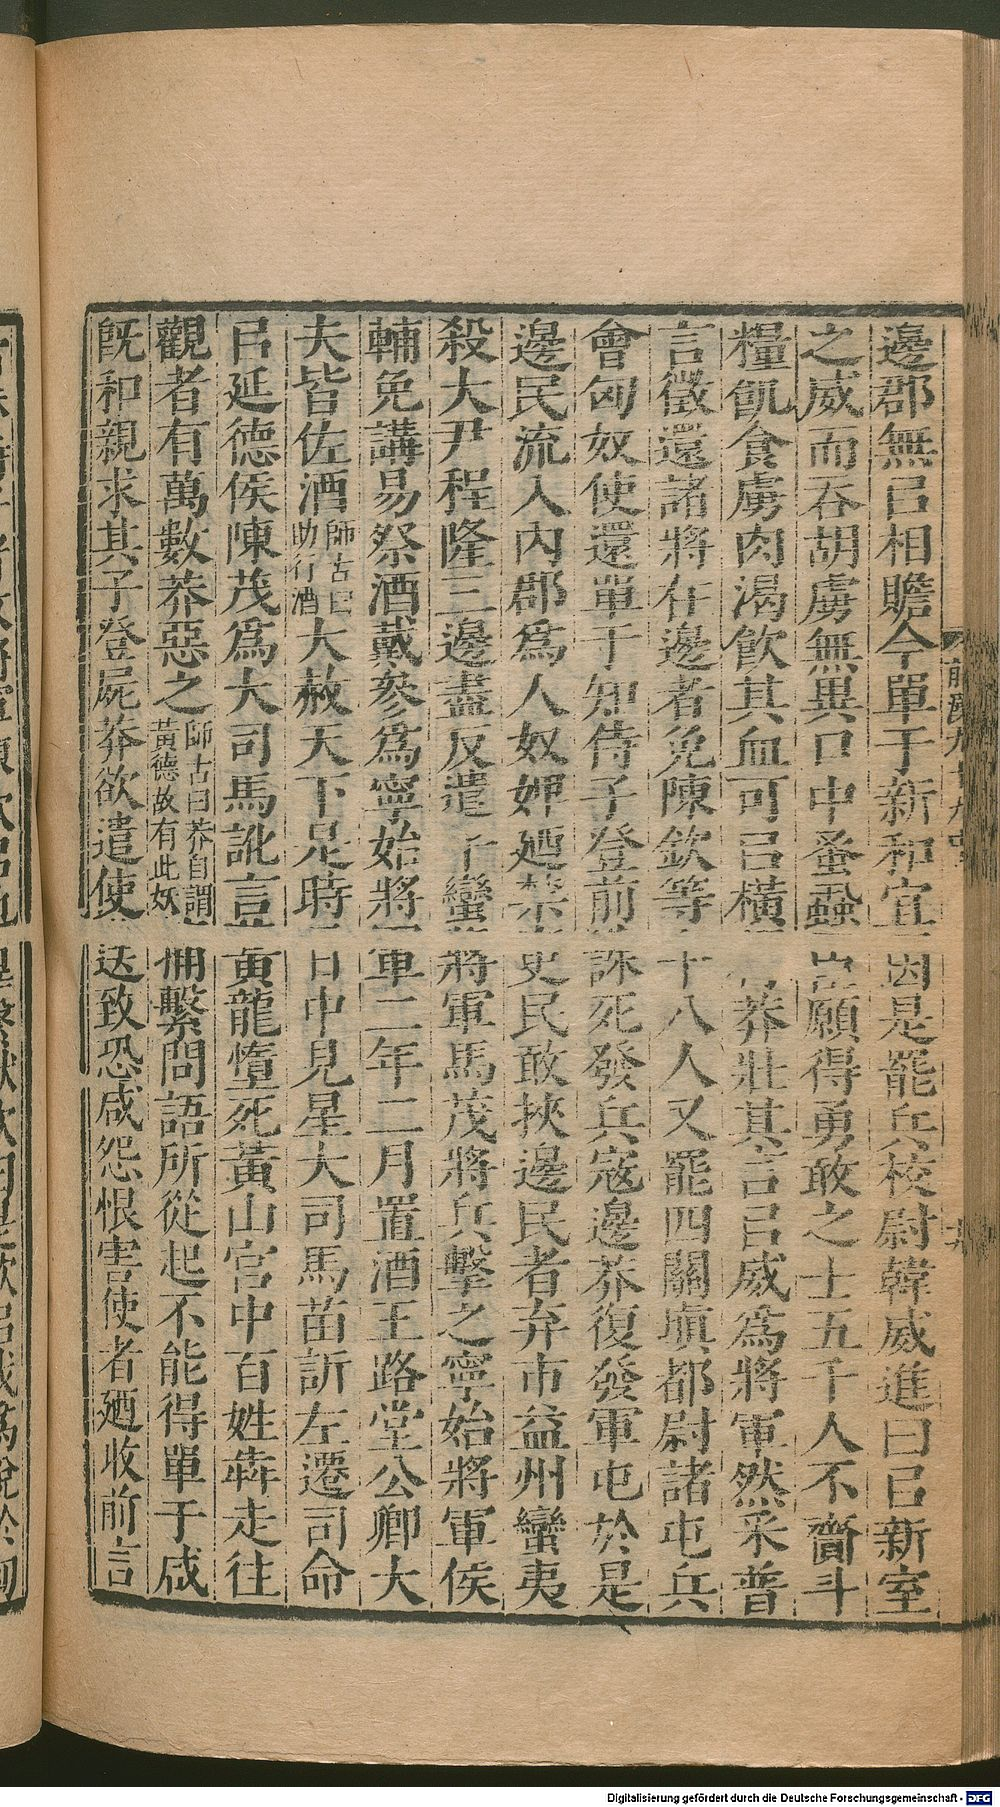 邊郡無㠯相贍今單于新和宜因是罷兵校尉韓威進曰㠯新室
之威而吞胡虜無異口中蚤蝨臣願得勇敢之士五千人不齎斗
糧飢食虜肉渴飲其血可㠯橫行莽壯其言㠯威為將軍然采普
言徵還諸將在邊者免陳欽等十八人又罷四關塡都尉諸屯兵
會匈奴使還單于知侍子登前誅死發兵寇邊莽復發軍屯於是
邊民流入內郡為人奴婢廼禁吏民敢挾邊民者弃市益州蠻夷
殺大尹程隆三邊盡反遣將軍馮茂將兵擊之寧始將軍侯
輔免講易祭酒戴參為寧始將軍二年二月置酒王路堂公卿大
夫皆佐酒師古曰助行酒大赦天下是時日中見星大司馬苗訢左遷司命
㠯延德侯陳茂為大司馬訛言黃龍墮死黃山宮中百姓犇走往
觀者有萬數莽惡之師古曰莽自謂黃德故有此妖捕繫問語所從起不能得單于咸
既和親求其子登屍莽欲遣使送致恐咸怨恨害使者廼收前言
前漢九十九中
Digitalisierung gefördert durch die Deutsche Forschungsgemeinschaft - DFG